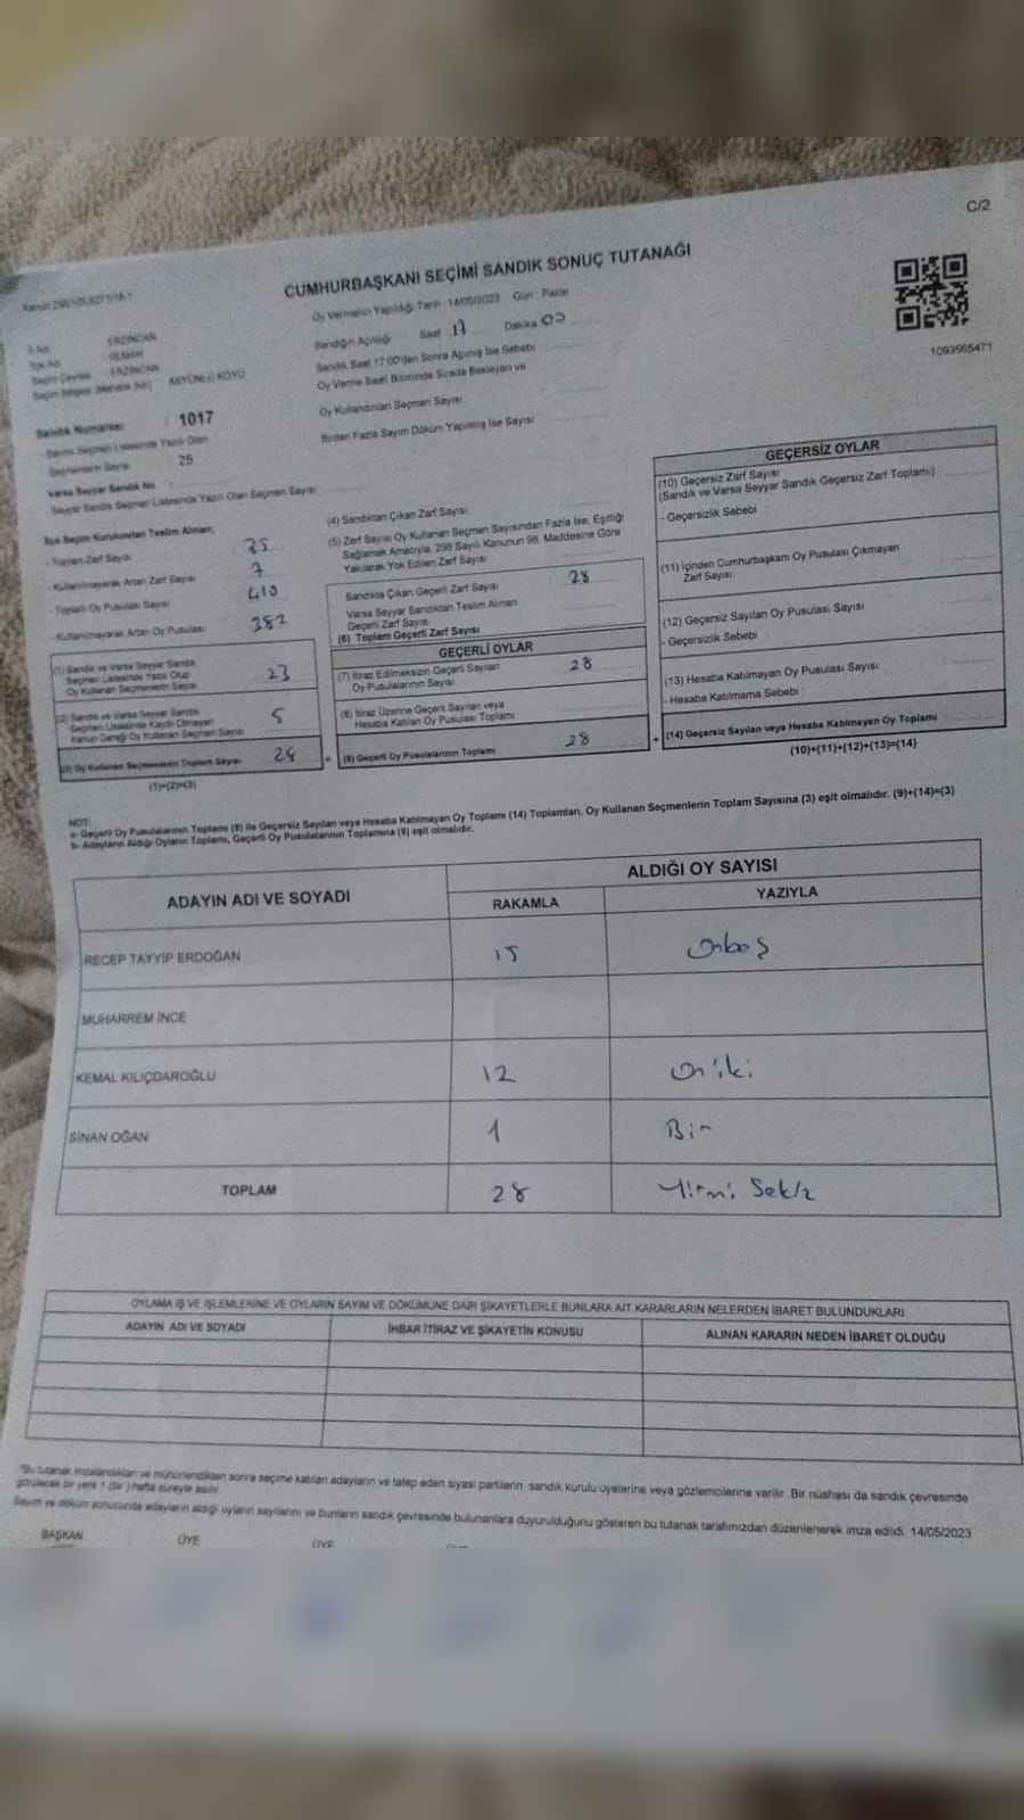 C/2
CUMHURBAŞKANI SEÇİMİ SANDIK SONUÇ TUTANAĞI
Oy Vermenin Yapıldığı Tarih : 14/05/2023 Gün : Pazar
1093965471
ERZİNCAN
ERZİNCAN
KÖYÜ
Sandığın Açılışı Saat 17 Dakika 00
Sandık Saat 17:00'den Sonra Açılmış İse Sebebi
Oy Verme Saati Bitiminde Sırada Bekleyen ve
Oy Kullandırılan Seçmen Sayısı
Birden Fazla Sayım Döküm Yapılmış İse Sayısı
Sandık Numarası : 1017
Seçmen Listesinde Yazılı Olan
Seçmenlerin Sayısı 25
Varsa Seyyar Sandık No
Seyyar Sandık Seçmen Listesinde Yazılı Olan Seçmen Sayısı
İlçe Seçim Kurulundan Teslim Alınan;
- Toplam Zarf Sayısı 35
- Kullanılmayarak Artan Zarf Sayısı 7
- Toplam Oy Pusulası Sayısı 410
- Kullanılmayarak Artan Oy Pusulası 382
(1) Sandık ve Varsa Seyyar Sandık
Seçmen Listesinde Yazılı Olup
Oy Kullanan Seçmenlerin Sayısı 23
(2) Sandık ve Varsa Seyyar Sandık
Seçmen Listesinde Kaydı Olmayan
Kanun Gereği Oy Kullanan Seçmen Sayısı 5
(3) Oy Kullanan Seçmenlerin Toplam Sayısı 28
(1)+(2)=(3)
(4) Sandıktan Çıkan Zarf Sayısı
(5) Zarf Sayısı Oy Kullanan Seçmen Sayısından Fazla İse, Eşitliği
Sağlamak Amacıyla, 298 Sayılı Kanunun 98. Maddesine Göre
Yakılarak Yok Edilen Zarf Sayısı
Sandıkta Çıkan Geçerli Zarf Sayısı 28
Varsa Seyyar Sandıktan Teslim Alınan
Geçerli Zarf Sayısı
(6) Toplam Geçerli Zarf Sayısı
GEÇERLİ OYLAR
(7) İtiraz Edilmeksizin Geçerli Sayılan
Oy Pusulalarının Sayısı 28
(8) İtiraz Üzerine Geçerli Sayılan veya
Hesaba Katılan Oy Pusulası Toplamı
(9) Geçerli Oy Pusulalarının Toplamı 28
GEÇERSİZ OYLAR
(10) Geçersiz Zarf Sayısı
(Sandık ve Varsa Seyyar Sandık Geçersiz Zarf Toplamı)
- Geçersizlik Sebebi
(11) İçinden Cumhurbaşkanı Oy Pusulası Çıkmayan
Zarf Sayısı
(12) Geçersiz Sayılan Oy Pusulası Sayısı
- Geçersizlik Sebebi
(13) Hesaba Katılmayan Oy Pusulası Sayısı
- Hesaba Katılmama Sebebi
(14) Geçersiz Sayılan veya Hesaba Katılmayan Oy Toplamı
(10)+(11)+(12)+(13)=(14)
NOT:
a- Geçerli Oy Pusulalarının Toplamı (9) ile Geçersiz Sayılan veya Hesaba Katılmayan Oy Toplamı (14) Toplamları, Oy Kullanan Seçmenlerin Toplam Sayısına (3) eşit olmalıdır. (9)+(14)=(3)
b- Adayların Aldığı Oyların Toplamı, Geçerli Oy Pusulalarının Toplamına (9) eşit olmalıdır.
ADAYIN ADI VE SOYADI
ALDIĞI OY SAYISI
RAKAMLA YAZIYLA
RECEP TAYYİP ERDOĞAN 15 onbeş
MUHARREM İNCE
KEMAL KILIÇDAROĞLU 12 on iki
SİNAN OĞAN 1 Bir
TOPLAM 28 Yirmi Sekiz
OYLAMA İŞ VE İŞLEMLERİNE VE OYLARIN SAYIM VE DÖKÜMÜNE DAİR ŞİKAYETLERLE BUNLARA AİT KARARLARIN NELERDEN İBARET BULUNDUKLARI
ADAYIN ADI VE SOYADI İHBAR İTİRAZ VE ŞİKAYETİN KONUSU ALINAN KARARIN NEDEN İBARET OLDUĞU
*Bu tutanak imzalandıktan ve mühürlendikten sonra seçime katılan adayların ve talep eden siyasi partilerin sandık kurulu üyelerine veya gözlemcilerine verilir. Bir nüshası da sandık çevresinde
görülecek bir yere 1 (bir) hafta süreyle asılır.
Sayım ve döküm sonucunda adayların aldığı oyların sayılarını ve bunların sandık çevresinde bulunanlara duyurulduğunu gösteren bu tutanak tarafımızdan düzenlenerek imza edildi. 14/05/2023
BAŞKAN ÜYE ÜYE